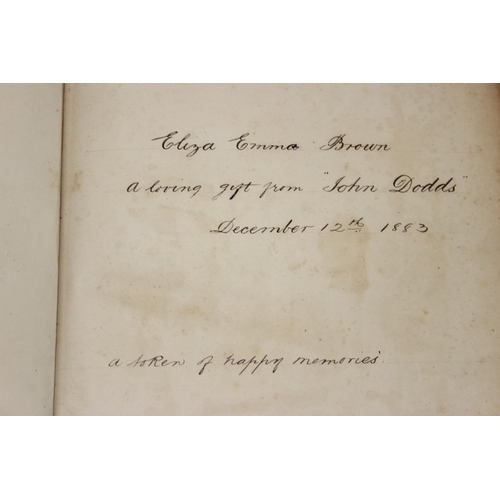 Eliza Emma Brown
a loving gift from "John Dodds"
December 12th 1883
a token of happy memories